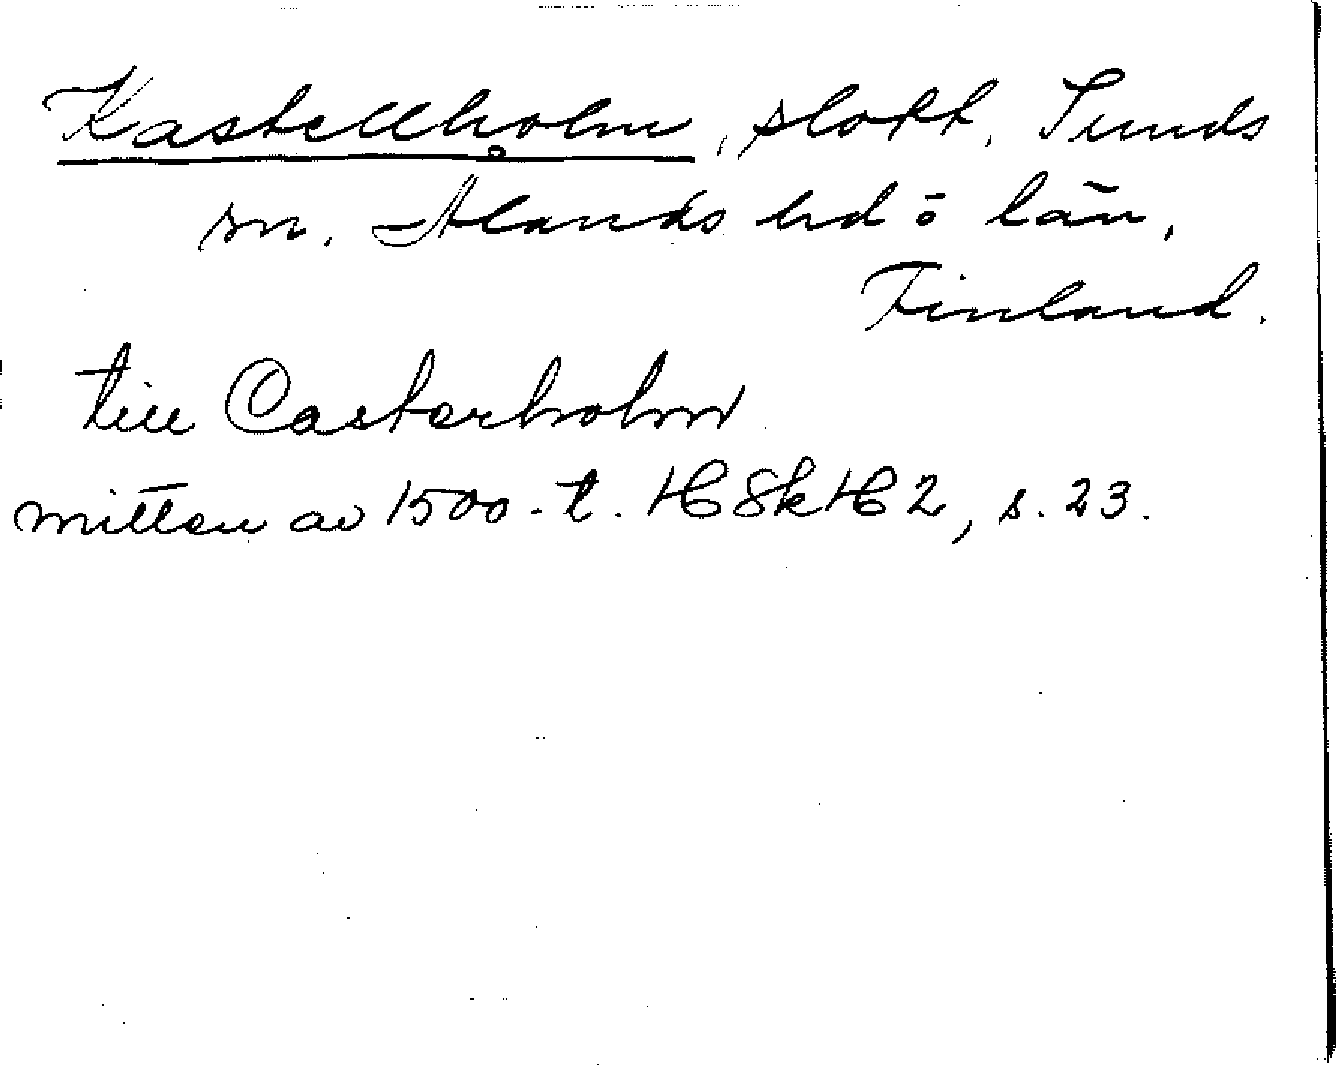 Kastellholm, slott, Sunds
sn. Ålands hd o län,
Finland.
till Casterholm
mitten av 1500-t. HSkH 2, s. 23.